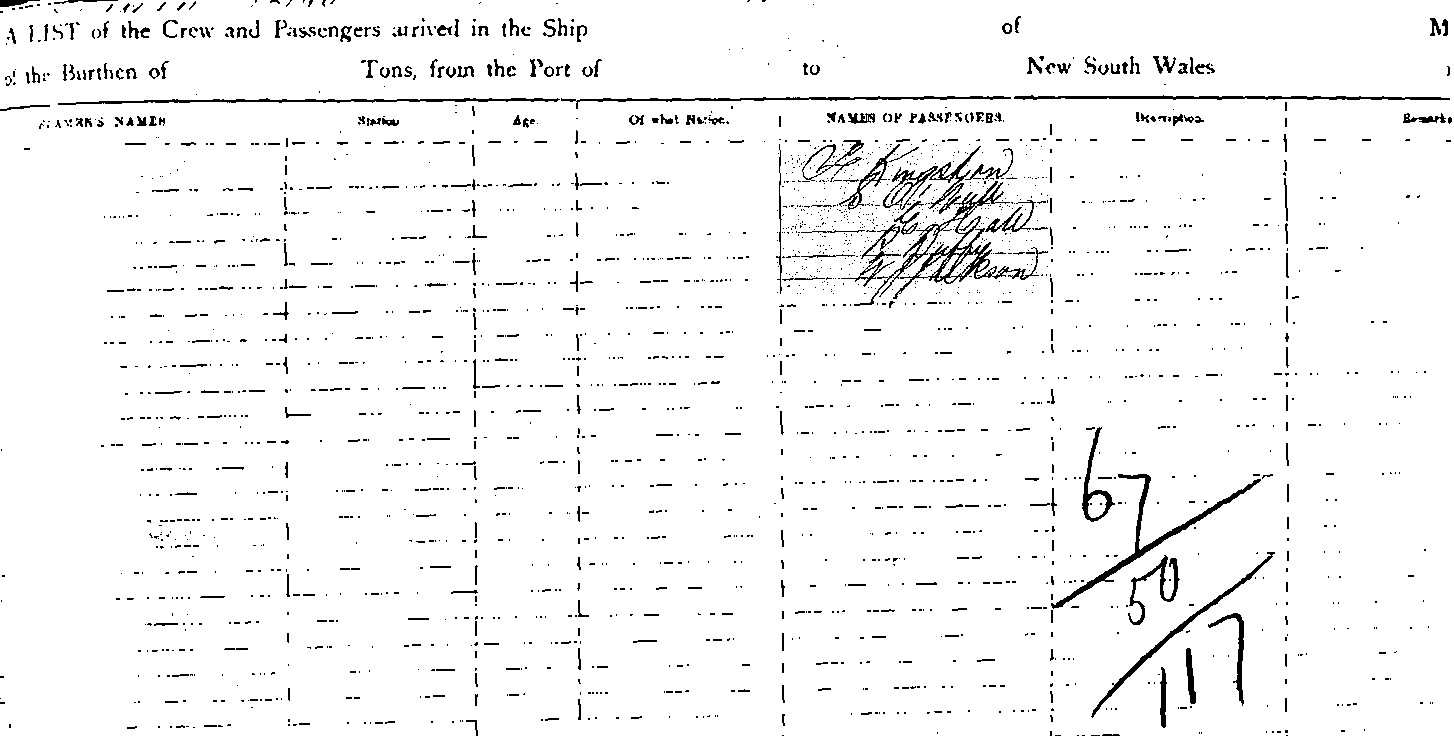 A LIST of the Crew and Passengers arrived in the Ship of M
of the Burthen of Tons, from the Port of to New South Wales
NAMES Station Age. Of what Nation. NAMES OF PASSENGERS. Description. Remarks
Kingston
S
E Hall
R Duffy
W J Jackson
67
50
117